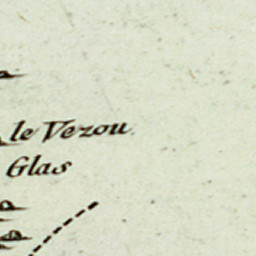 le Vezou
Glas